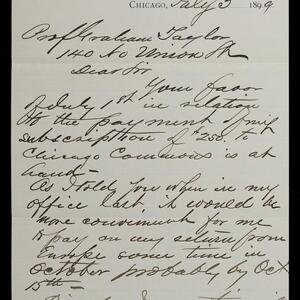 CHICAGO, July 3 1899
Prof Graham Taylor
140 No Union St
Dear Sir
Your favor
of July 1st in relation
to the payment of my
subscription of $250. to
Chicago Commons is at
hand—
As I told you when in my
office last it would be
more convenient for me
to pay on my return from
Europe some time in
October probably by Oct
15th—